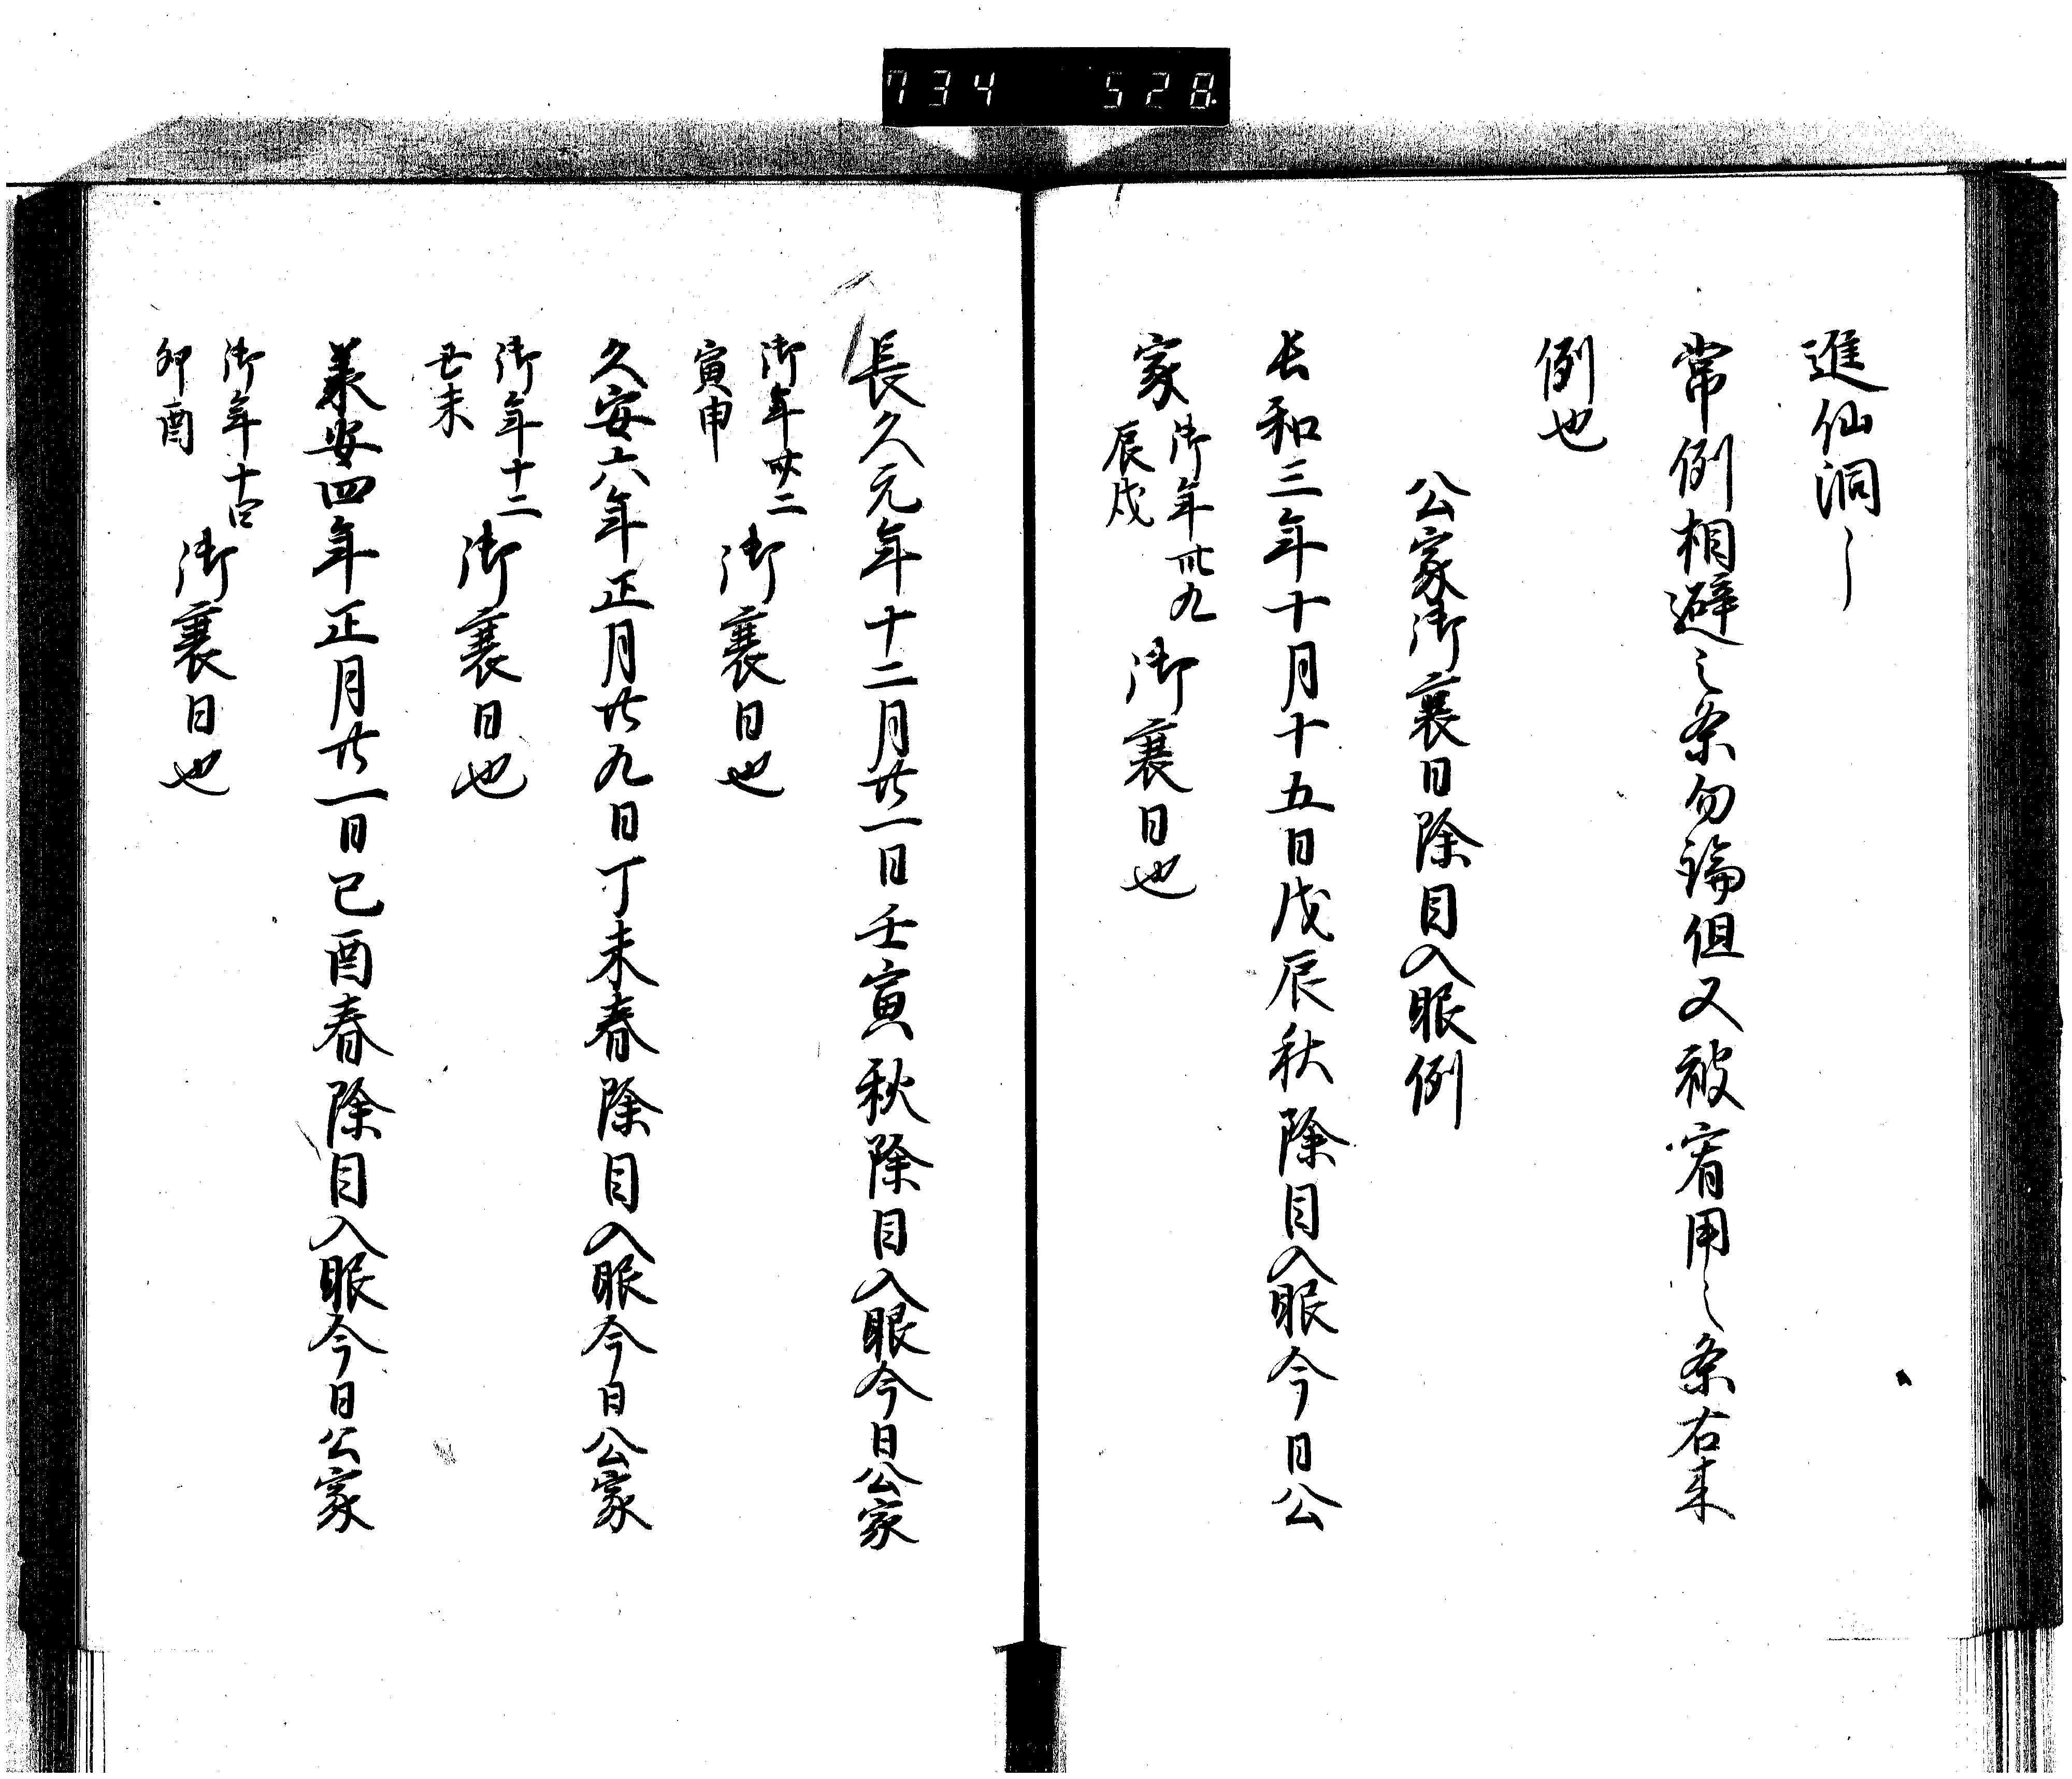 734 528
進仙洞之
常例相避之条勿論但又被宥用之条右来
例也
公家御衰日除目入眼例
長和三年十月十五日戊辰秋除目入眼今日公
家御年卅九辰戌御衰日也
長久元年十二月廿一日壬寅秋除目入眼今日公家
御年廿二寅申御衰日也
久安六年正月廿九日丁未春除目入眼今日公家
御年十二丑未御衰日也
承安四年正月廿一日己酉春除目入眼今日公家
御年十四卯酉御衰日也